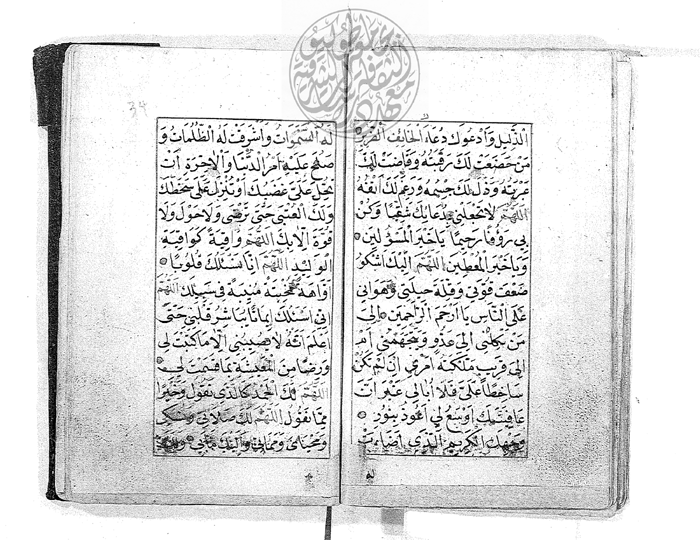 الذَّلِيلِ وَأَدْعُوكَ دُعَاءَ الْخَائِفِ الضَّرِيرِ
مَنْ خَضَعَتْ لَكَ رَقَبَتُهُ وَفَاضَتْ لَكَ
عَبْرَتُهُ وَذَلَّ لَكَ جِسْمُهُ وَرَغِمَ لَكَ أَنْفُهُ
اللَّهُمَّ لَا تَجْعَلْنِي بِدُعَائِكَ شَقِيًّا وَكُنْ
بِي رَؤُفًا رَحِيمًا يَا خَيْرَ الْمَسْؤُلِينَ
وَيَا خَيْرَ الْمُعْطِينَ اللَّهُمَّ إِلَيْكَ أَشْكُو
ضَعْفَ قُوَّتِي وَقِلَّةَ حِيلَتِي وَهَوَانِي
عَلَى النَّاسِ يَا أَرْحَمَ الرَّاحِمِينَ إِلَى
مَنْ تَكِلُنِي إِلَى عَدُوٍّ يَتَجَهَّمُنِي أَمْ
إِلَى قَرِيبٍ مَلَّكْتَهُ أَمْرِي إِنْ لَمْ تَكُنْ
سَاخِطًا عَلَيَّ فَلَا أُبَالِي غَيْرَ أَنَّ
عَافِيَتَكَ أَوْسَعُ لِي أَعُوذُ بِنُورِ
وَجْهِكَ الْكَرِيمِ الَّذِي أَضَاءَتْ
لَهُ
34
لَهُ السَّمَوَاتُ وَأَشْرَقَتْ لَهُ الظُّلُمَاتُ وَ
صَلَحَ عَلَيْهِ أَمْرُ الدُّنْيَا وَالْآخِرَةِ أَنْ
تُحِلَّ عَلَيَّ غَضَبَكَ أَوْ تُنْزِلَ عَلَيَّ سَخَطَكَ
وَلَكَ الْعُتْبَى حَتَّى تَرْضَى وَلَا حَوْلَ وَلَا
قُوَّةَ إِلَّا بِكَ اللَّهُمَّ وَاقِيَةً كَوَاقِيَةِ
الْوَلِيدِ اللَّهُمَّ إِنَّا نَسْئَلُكَ قُلُوبًا
أَوَّاهَةً مُخْبِتَةً مُنِيبَةً فِي سَبِيلِكَ اللَّهُمَّ
إِنِّي أَسْئَلُكَ إِيمَانًا يُبَاشِرُ قَلْبِي حَتَّى
أَعْلَمَ أَنَّهُ لَا يُصِيبُنِي إِلَّا مَا كَتَبْتَ لِي
وَرِضًا مِنَ الْمَعِيشَةِ بِمَا قَسَمْتَ لِي
اللَّهُمَّ لَكَ الْحَمْدُ كَالَّذِي نَقُولُ وَخَيْرًا
مِمَّا نَقُولُ اللَّهُمَّ لَكَ صَلَاتِي وَنُسُكِي
وَمَحْيَايَ وَمَمَاتِي وَإِلَيْكَ مَآبِي